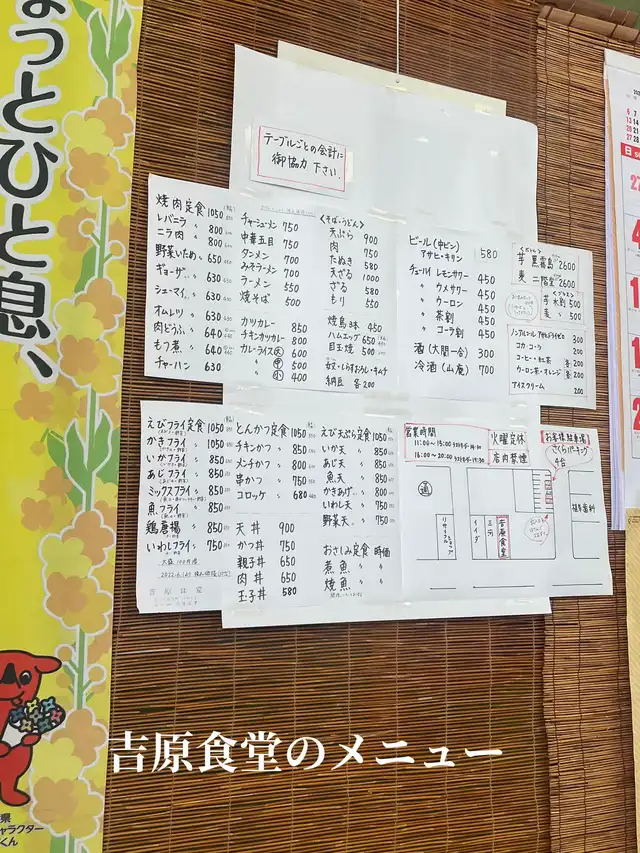 ょっとひと息、
テーブルごとの会計に
御協力 下さい.
焼肉定食 1050
レバニラ 〃 800
ニラ肉 〃 800
野菜いため〃 650
ギョーザ 〃 630
シューマイ 〃 630
オムレツ 〃 630
肉どうふ 〃 640
もつ煮 〃 640
チャーハン 630
チャーシューメン 750
中華五目 750
タンメン 700
みそラーメン 700
ラーメン 550
焼そば 500
カツカレー 850
チキンカツカレー 800
カレーライス 大 600
中 500
小 400
<そば・うどん>
天ぷら 900
肉 750
たぬき 580
天ざる 1000
ざる 580
もり 550
焼鳥3本 450
ハムエッグ 650
目玉焼 500
納豆 各200
ビール(中ビン) 580
アサヒ・キリン
チューハイ レモンサワー 450
〃 ウメサワー 450
〃 ウーロン 450
〃 茶割 450
〃 コーラ割 450
酒(大関一合) 300
冷酒(山庵) 700
芋 黒霧島 2600
麦 二階堂 2600
芋 水割 500
麦 〃 500
ノンアルコール アサヒドライゼロ 300
コカ・コーラ 200
コーヒー・紅茶 各200
ウーロン茶・オレンジ 各200
アイスクリーム 200
えびフライ定食 1050
かきフライ 〃 1050
いかフライ 〃 850
あじフライ 〃 850
ミックスフライ〃 850
魚フライ 〃 850
鶏唐揚 〃 850
いわしフライ〃 750
とんかつ定食 1050
チキンかつ 〃 850
メンチかつ 〃 800
串かつ 〃 750
コロッケ 〃 680
天丼 900
かつ丼 750
親子丼 650
肉丼 650
玉子丼 580
えび天ぷら定食 1050
いか天 〃 850
あじ天 〃 850
魚天 〃 850
かきあげ〃 800
いわし天 〃 750
野菜天 〃 750
おさしみ定食 時価
煮魚 〃 〃
焼魚 〃 〃
営業時間
11:00〜15:00 ラストオーダー 14:30
16:00〜20:00 ラストオーダー 19:30
火曜定休
店内禁煙
お客様駐車場
さくらパーキング
4台
リサイクルショップ
イイダ
三河
吉原食堂
吉原食堂のメニュー
県
ャラクター
くん